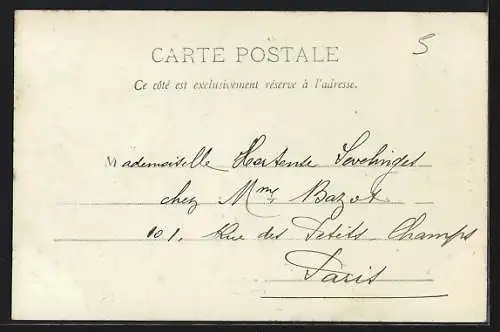 CARTE POSTALE
5
Ce côté est exclusivement réservé à l'adresse.
Mademoiselle Hortense Sevelinges
chez Mme Bazot
101, Rue des Petits Champs
Paris